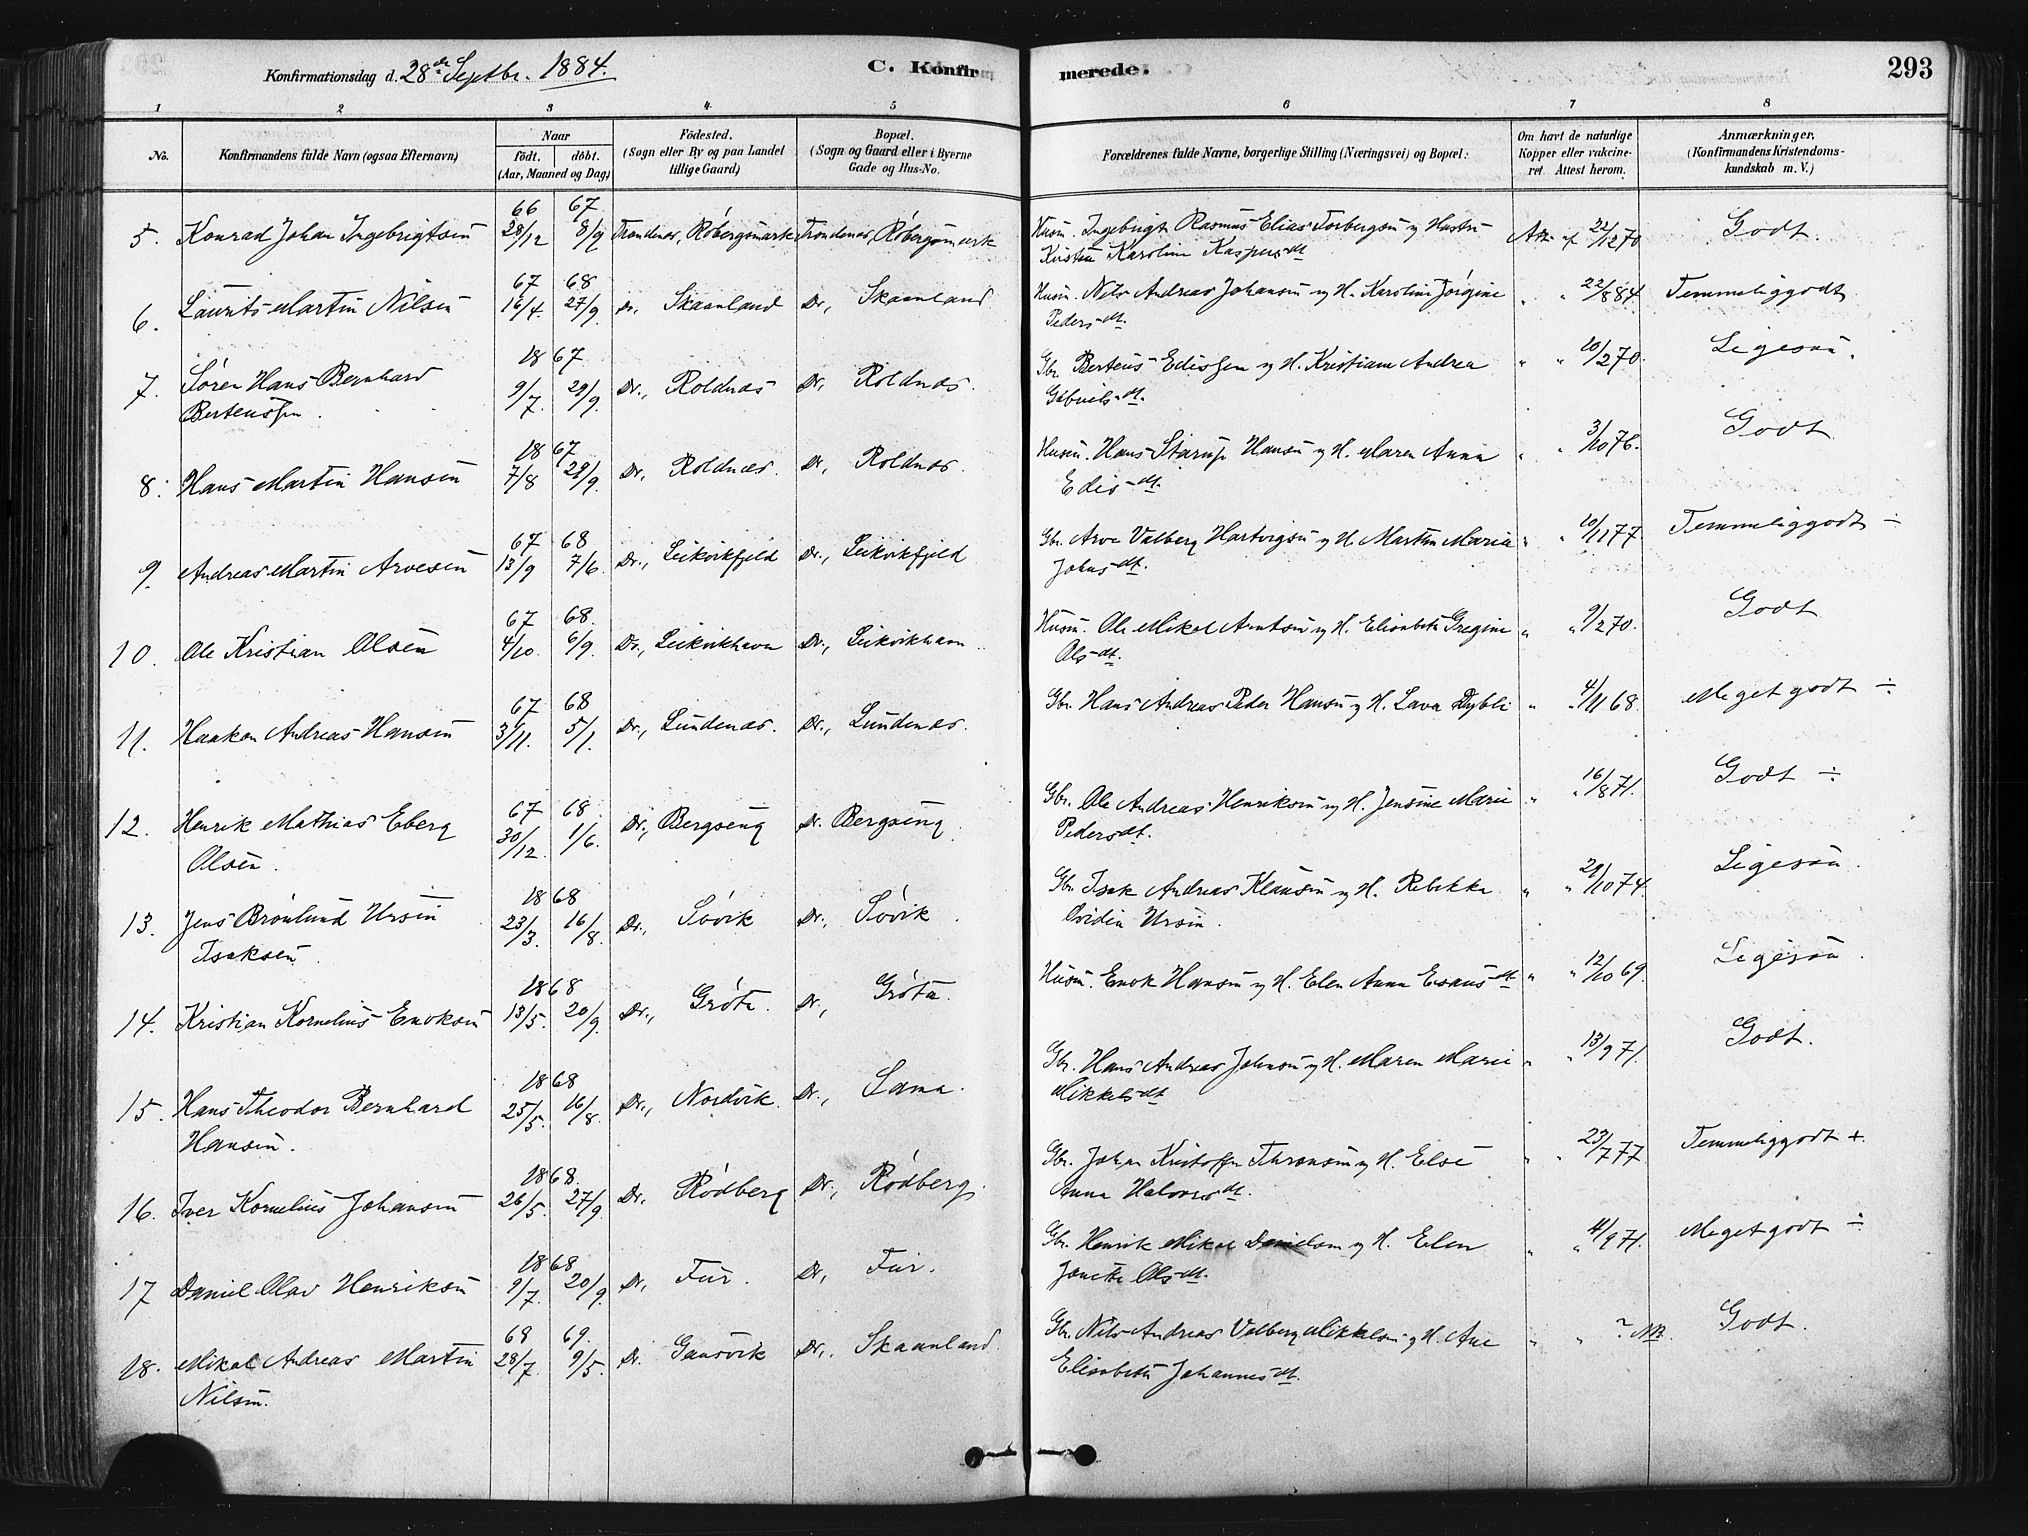 Konfirmationsdag d. 28de Septbr. 1884.
C. Konfirmerede.
293
1 2 3 4 5 6 7 8
No.
Konfirmandens fulde Navn (ogsaa Efternavn)
Naar
födt. döbt.
(Aar, Maaned og Dag)
Födested.
(Sogn eller By og paa Landet
tillige Gaard)
Bopæl.
(Sogn og Gaard eller i Byerne
Gade og Hus-No.
Forældrenes fulde Navne, borgerlige Stilling (Næringsvei) og Bopæl:
Om havt de naturlige
Kopper eller vakcine-
ret. Attest herom.
Anmærkninger.
(Konfirmandens Kristendoms-
kundskab m. V.)
66 67
5. Konrad Johan Ingebrigtsen 28/12 8/9 Trondenes, Röbergsmark Trondenes, Röbergsmark Husm. Ingebrigt Rasmus Elias Torbergsen og Hustru Att. af 22/12 70 Godt.
Kristine Karoline Kaspersdt.
67 68
6. Laurits Martin Nilsen 16/4. 27/9. Do., Skaanland Do., Skaanland Husm. Nils Andreas Johansen og H. Karoline Jörgine " " 22/8 84. Temmeliggodt
Pedersdt.
18 67
7. Sören Hans Bernhard 9/7. 29/9. Do., Roldnæs Do., Roldnæs. Gbr. Berteus Edissen og H. Kristiane Andrea " " 10/2 70. Ligesaa.
Berteussen. Gabrielsdt.
18 67
8. Hans Martin Hansen 7/8 29/9. Do., Roldnæs. Do., Roldnæs. Husm. Hans Starup Hansen og H. Maren Anna " " 3/10 76. Godt
Edisdt.
67 68
9. Andreas Martin Arvesen 13/9 7/6. Do., Leikvikfjeld Do., Leikvikfjeld Gbr. Arve Valberg Hartvigsen og H. Martha Maria " " 10/11 77 Temmeliggodt ÷
Johnsdt.
67 68.
10. Ole Kristian Olsen 4/10. 6/9. Do., Leikvikhavn Do., Leikvikhavn Husm. Ole Mikal Arntsen og H. Elisabeth Gregine " " 9/2 70. Godt
Olsdt.
67 68
11. Haakon Andreas Hansen 3/11. 5/1. Do., Lundenes. Do., Lundenes. Gbr. Hans Andreas Peder Hansen og H. Lava Dybli " " 4/11 68. Meget godt ÷
67 68
12. Henrik Mathias Eberg 30/12. 1/6. Do., Bergseng Do. Bergseng. Gbr. Ole Andreas Henriksen og H. Jensine Marie " " 16/8 71. Godt ÷
Olsen. Pedersdt.
18 68
13. Jens Brönlund Ursin 23/3. 16/8. Do., Sövik Do., Sövik. Gbr. Isak Andreas Klausen og H. Rebekka " " 29/10 74. Ligesaa.
Isaksen. Ovidia Ursin.
18 68
14. Kristian Kornelius Enoksen 13/5. 20/9. Do., Gröta. Do., Gröta. Husm. Enok Hansen og H. Elen Anna Esausdt. " " 12/10 69. Ligesaa.
18 68
15. Hans Theodor Bernhard 25/5. 16/8. Do., Nordvik. Do., Sama. Gbr. Hans Andreas Johnsen og H. Maren Marie " " 13/9 71. Godt.
Hansen. Mikkelsdt
18 68.
16. Iver Kornelius Johansen 26/5. 27/9. Do. Rödberg Do., Rödberg. Gbr. Johan Kristoffer Thronsen og H. Else " " 23/7 77. Temmeliggodt +.
Anna Halvorsdt.
18 68
17 Daniel Olav Henriksen 9/7. 20/9. Do, Fur. Do, Fur. Gbr. Henrik Mikal Danielsen og H. Elen " " 4/9 71. Meget godt ÷
Janette Olsdt.
68 69.
18. Mikal Andreas Martin 28/7. 9/5. Do. Gausvik Do., Skaanland. Gbr. Nils Andreas Valberg Mikkelsen og H. Ane " " ? NB. Godt.
Nilsen. Elisabeth Johannesdt.